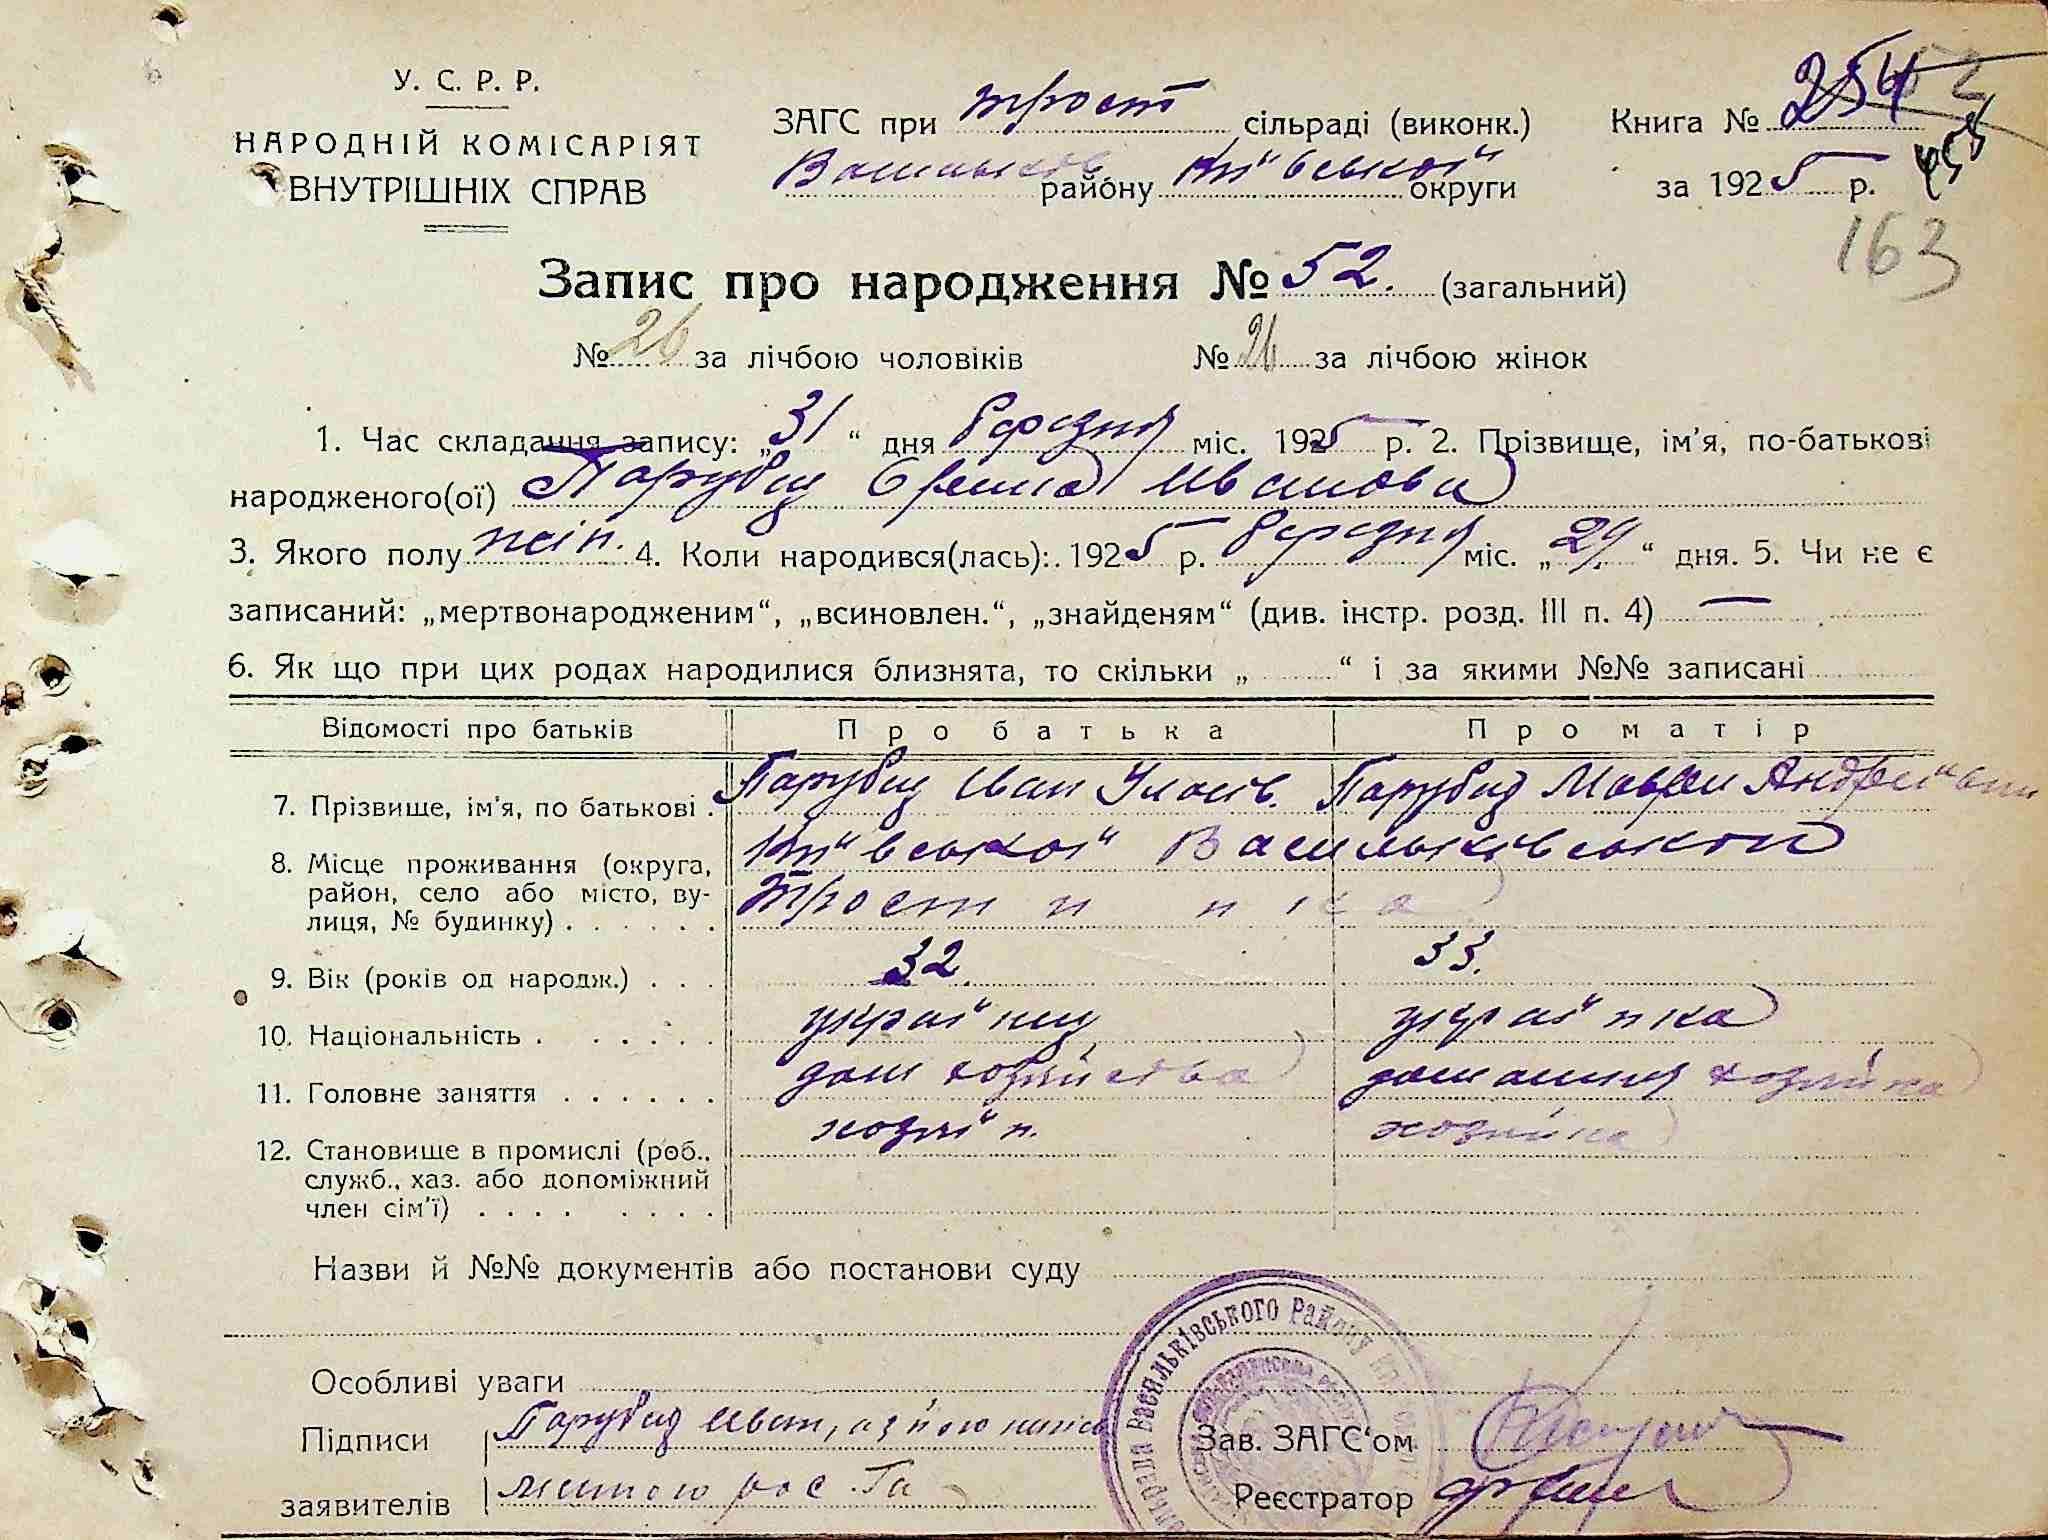 У. С. Р. Р.
НАРОДНІЙ КОМІСАРІЯТ
ВНУТРІШНІХ СПРАВ
ЗАГС при трост сільраді (виконк.)
Васильків. району Київської округи
Книга № 254
за 1925 р.
163
Запис про народження № 52. (загальний)
№ 26 за лічбою чоловіків № 26 за лічбою жінок
1. Час складання запису: „31“ дня березня міс. 1925 р. 2. Прізвище, ім'я, по-батькові
народженого(ої) Парубец Ірина Иванова
3. Якого полу жін. 4. Коли народився(лась): 1925 р. березня міс. „29.“ дня. 5. Чи не є
записаний: „мертвонародженим“, „всиновлен.“, „знайденям“ (див. інстр. розд. III п. 4) —
6. Як що при цих родах народилися близнята, то скільки „ “ і за якими №№ записані
Відомості про батьків Про батька Про матір
7. Прізвище, ім'я, по батькові . Іван Андреївни
8. Місце проживання (округа, район, село або місто, вулиця, № будинку) Київської Васильківського
9. Вік (років од народж.) 32. 33.
10. Національність українец українка
11. Головне заняття дом хозяйства домашня хозяйка
12. Становище в промислі (роб., служб., хаз. або допоміжний член сім'ї) хозяїн. хозяйка
Назви й №№ документів або постанови суду
Особливі уваги
Підписи
заявителів
Зав. ЗАГС'ом
Реєстратор
Васильківського Району